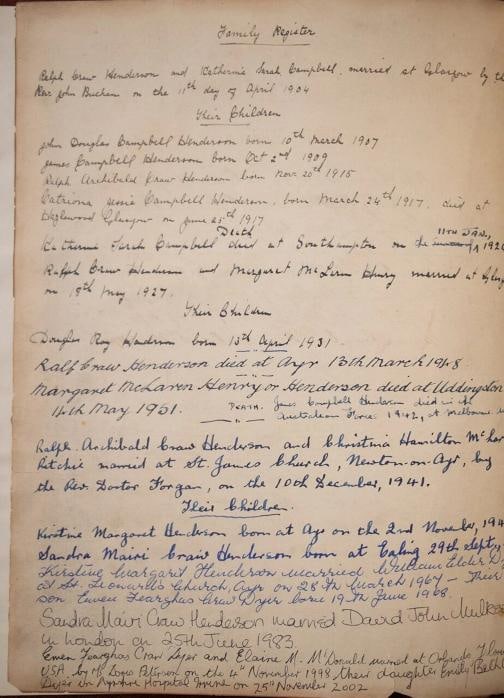 Family Register
Ralph Craw Henderson and Katherine Sarah Campbell, married at Glasgow by the
Rev. John Buchan on the 11th day of April 1904
Their Children
John Douglas Campbell Henderson born 10th March 1907
James Campbell Henderson born Oct 2nd 1909
Ralph Archibald Craw Henderson born Nov. 20th 1915
Catriona Jessie Campbell Henderson, born March 24th 1917, died at
Hazlewood Glasgow on June 25th 1917
Death
11TH JAN,
Katherine Sarah Campbell died at Southampton on the 192
Ralph Craw Henderson and Margaret McLaren Henry married at
on 18th May 1927.
Their Children
Douglas Roy Henderson born 13th April 1931
Ralf Craw Henderson died at Ayr 13th March 1948
Margaret McLaren Henry or Henderson died at Uddingston
14th May 1951.
DEATH. James Campbell Henderson died in the
Australian Force 1942, at Melbourne
Ralph Archibald Craw Henderson and Christina Hamilton
Ritchie married at St. James Church, Newton-on-Ayr, by
the Rev. Doctor Forgan, on the 10th December, 1941.
Their Children.
Kirstine Margaret Henderson born at Ayr on the 2nd November, 194
Sandra Mairi Craw Henderson born at Ealing 29th Sept,
Kirstine Margaret Henderson married William
at St. Leonards Church, Ayr on 28th March 1967 – Their
son Ewen Fearghas Craw Dyer born 19th June 1968.
Sandra Mairi Craw Henderson married David John
in London on 25th June 1983.
Ewen Fearghas Craw Dyer and Elaine M. McDonald married at Orlando
USA by on the 4th November 1998, their daughter Emily
Dyer in Ayrshire Hospital Irvine on 25th November 2002